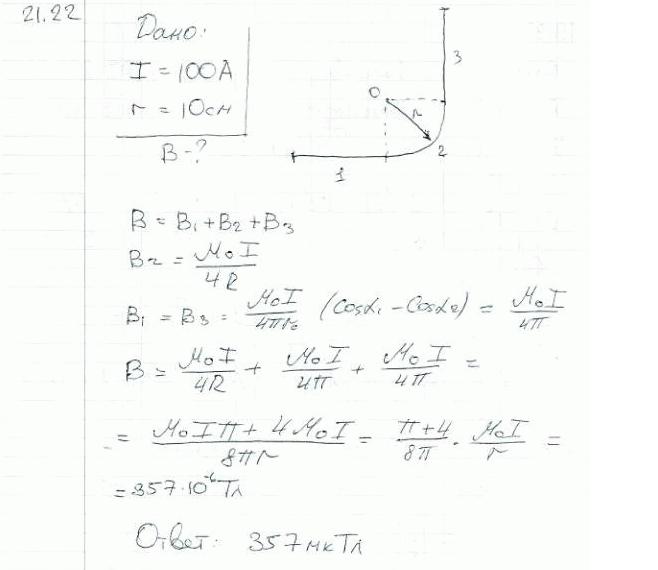 21.22
Дано:
I = 100A
r = 10см
B - ?
O
r
1
2
3
B = B₁ + B₂ + B₃
B₂ = M₀I / 4R
B₁ = B₃ = M₀I / 4πr₀ (Cosα₁ - Cosα₂) = M₀I / 4π
B = M₀I / 4R + M₀I / 4π + M₀I / 4π =
= M₀Iπ + 4M₀I / 8πr = π+4 / 8π · M₀I / r =
= 357·10⁻⁶Тл
Ответ: 357мкТл